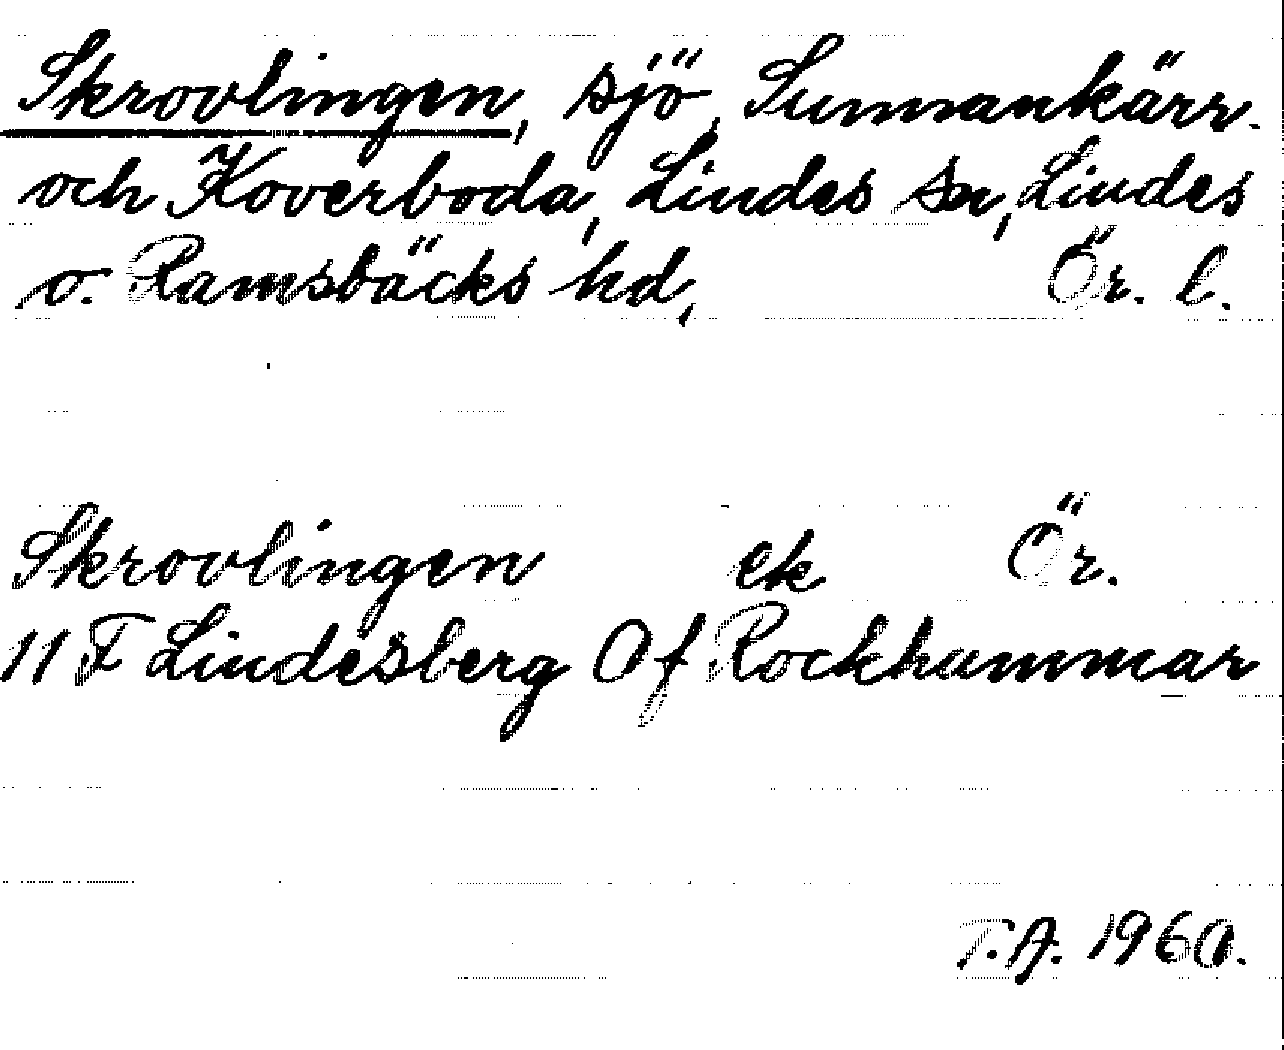 Skrovlingen, sjö, Sunnankärr
och Koverboda, Lindes sn, Lindes
o. Ramsbäcks hd, Ör. l.
Skrovlingen ek Ör.
11 F Lindesberg Of Rockhammar
T.A. 1960.